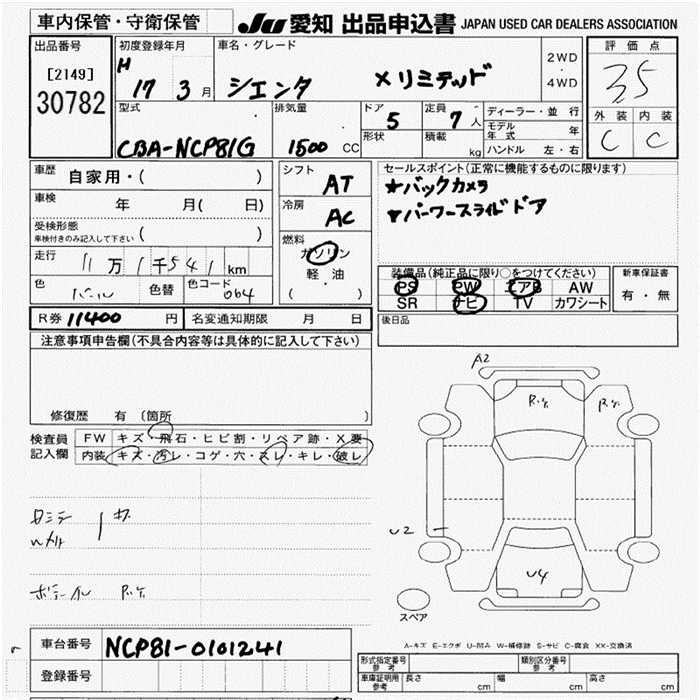 車内保管・守衛保管
JU 愛知 出品申込書 JAPAN USED CAR DEALERS ASSOCIATION
出品番号
[2149]
30782
初度登録年月
H 17 3 月
車名・グレード
シエンタ Xリミテッド
2WD
・
4WD
評価点
3.5
外装 内装
C C
型式
CBA-NCP81G
排気量
1500 CC
ドア
5
形状
定員
7 人
積載
kg
ディーラー・並行
モデル年式 年
ハンドル 左・右
車歴 自家用・( )
車検 年 月( 日)
受検形態
車検付きのみ記入して下さい ( )
走行 11万1千541km
色 パール 色替 色コード 064
シフト
AT
冷房
AC
燃料
ガソリン
軽油
( ・ )
セールスポイント(正常に機能するものに限ります)
★バックカメラ
★パーワースライドドア
装備品(純正品に限り○をつけてください)
PS PW エアB AW
SR ナビ TV カワシート
新車保証書
有・無
後日品
R券 11400 円 名変通知期限 月 日
注意事項申告欄(不具合内容等は具体的に記入して下さい)
修復歴 有 (箇所 )
検査員記入欄
FW キズ・飛石・ヒビ割・リペア跡・X要
内装 キズ・汚レ・コゲ・穴・スレ・キレ・破レ
A2
U2
U4
スペア
A-キズ E-エクボ U-凹み W-補修跡 S-サビ C-腐食 XX-交換済
車台番号 NCP81-0101241
登録番号
形式指定番号 参考
類別区分番号 参考
車庫証明用 参考 長さ cm 幅 cm 高さ cm